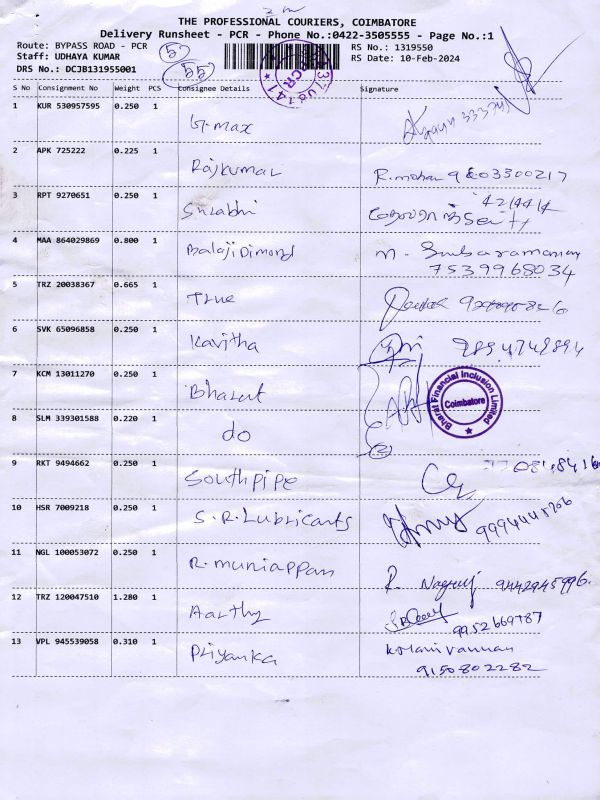 THE PROFESSIONAL COURIERS, COIMBATORE
Delivery Runsheet - PCR - Phone No.:0422-3505555 - Page No.:1
Route: BYPASS ROAD - PCR
RS No.: 1319550
Staff: UDHAYA KUMAR
RS Date: 10-Feb-2024
DRS No.: DCJB131955001
55
S No Consignment No Weight PCS Consignee Details Signature
1 KUR 530957595 0.250 1
2 APK 725222 0.225 1 Rajkumar R.mohan
3 RPT 9270651 0.250 1 Surabhi
4 MAA 864029869 0.800 1 Balaji Dimond M. Subaramaniam
7539968034
5 TRZ 20038367 0.665 1 True Deepak
6 SVK 65096858 0.250 1 Kavitha
7 KCM 13011270 0.250 1 Bharat
Bharat Financial Inclusion Limited
Coimbatore
8 SLM 339301588 0.220 1 do
9 RKT 9494662 0.250 1 South pipe
10 HSR 7009218 0.250 1 S.R. Lubricants
11 NGL 100053072 0.250 1 R. muniappan R. Nagaraj 9442945996
12 TRZ 120047510 1.280 1 Aarthy
9952669787
13 VPL 945539058 0.310 1 Priyanka Kalanivannan
9150802282